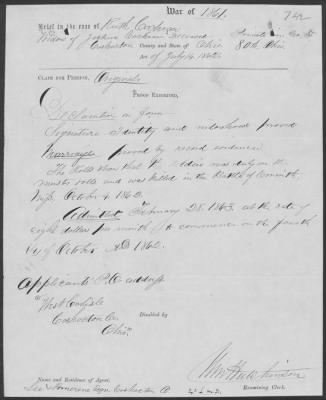 War of 1861.
742
Brief in the case of Ruth Cochran
Widow of Joshua Cochran Deceased Private Co.
Coshocton County and State of Ohio 80th Ohio
Act of July 14 1862
CLAIM FOR PENSION. Original
PROOF EXHIBITED,
Declaration in form
Signature Identity and widowhood proved
Marriage proved by record evidence
The Rolls show that the soldier was duly on the
muster rolls and was killed in the Battle of Corinth
Miss, October 4, 1862.
Admitted February 28, 1863, at the rate of
eight dollars per month to commence on the fourth
day of October AD 1862.
Applicants P.O. address
"West Carlisle
Coshocton Co.
Ohio"
Disabled by
Wm Hutchinson
Name and Residence of Agent. Examining Clerk.
Coshocton O.